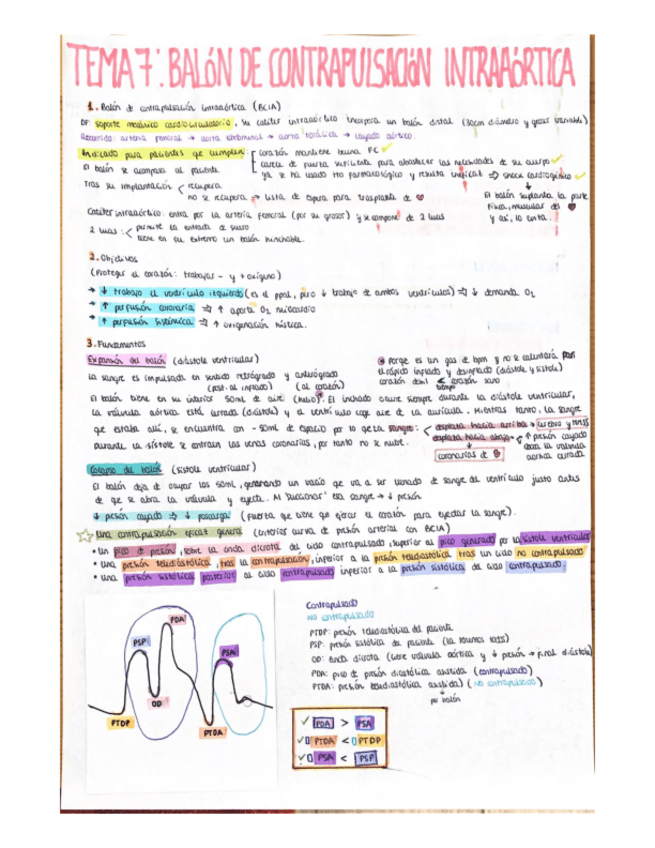 TEMA 7: BALÓN DE CONTRAPULSACIÓN INTRAAÓRTICA
1. Balón de contrapulsación intraaórtica (BCIA)
DF: soporte mecánico cardiocirculatorio, su catéter intraaórtico incorpora un balón distal (30cm diámetro y grosor variable)
Recorrido: arteria femoral → aorta abdominal → aorta torácica → cayado aórtico.
Indicado para pacientes que cumplen: corazón mantiene buena FC
carece de fuerza suficiente para abastecer las necesidades de su cuerpo
ya se ha usado tto farmacológico y resulta ineficaz ⇒ shock cardiogénico
El balón se acompasa al paciente
Tras su implantación < recupera
no se recupera → lista de espera para trasplante de ♥
El balón suplanta la parte
física, muscular del ♥
Catéter intraaórtico: entra por la arteria femoral (por su grosor) y se compone de 2 luces
y así, lo
2 luces: < permite la entrada de suero
tiene en su extremo un balón hinchable.
2. Objetivos
(Proteger el corazón: trabajar - y + oxígeno)
→ ↓ trabajo el ventrículo izquierdo (es el ppal, pero ↓ trabajo de ambos ventrículos) ⇒ ↓ demanda O2
→ ↑ perfusión coronaria ⇒ ↑ aporte O2 miocardio
→ ↑ perfusión sistémica ⇒ ↑ oxigenación
3. Fundamentos
Expansión del balón (diástole ventricular)
porqe es un gas de bpm y no se calentará para
el rápido inflado y desinflado (diástole y sístole)
La sangre es impulsada en sentido retrógrado y anterógrado
(post. al inflado) (al corazón)
corazón sano
El balón tiene en su interior 50mL de aire (helio). El hinchado ocurre siempre durante la diástole ventricular,
la válvula aórtica está cerrada (diástole) y el ventrículo coge aire de la aurícula. Mientras tanto, la sangre
que estaba allí, se encuentra con - 50mL de espacio por lo qe la sangre: < desplaza hacia arriba → cerebro y MMSS
desplaza hacia abajo → ↑ presión cayado
Durante la sístole se contraen las venas coronarias, por tanto no se nutre.
coronarias de ♥
válvula
aórtica cerrada
Colapso del balón (sístole ventricular)
El balón deja de ocupar los 50mL, generando un vacío que va a ser llenado de sangre del ventrículo justo antes
de qe se abra la válvula y eyecta. Al "succionar" esa sangre → ↓ presión
↓ presión cayado ⇒ ↓ poscarga (fuerza que tiene que ejercer el corazón para eyectar la sangre).
Una contrapulsación eficaz genera (criterios curva de presión arterial con BCIA)
• Un pico de presión, sobre la onda dicrota del ciclo contrapulsado, superior al pico generado por la sístole ventricular
• una presión telediastólica, tras la contrapulsación, inferior a la presión telediastólica tras un ciclo no contrapulsado
• una presión sistólica posterior al ciclo contrapulsado inferior a la presión sistólica del ciclo contrapulsado.
PDA
PSP
PSA
OD
PTDP
PTDA
Contrapulsado
No contrapulsado
PTDP: presión telediastólica del paciente
PSP: presión sistólica del paciente
OD: onda dicrota (cierre válvula aórtica y ↓ presión → final diástole)
PDA: pico de presión diastólica asistida (contrapulsado)
PTDA: presión telediastólica asistida (no contrapulsado)
por balón
✓ PDA > PSA
✓ PTDA < PTDP
✓ PSA < PSP